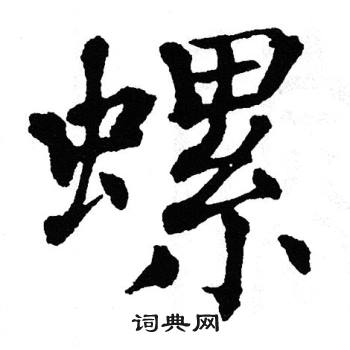 螺
词典网